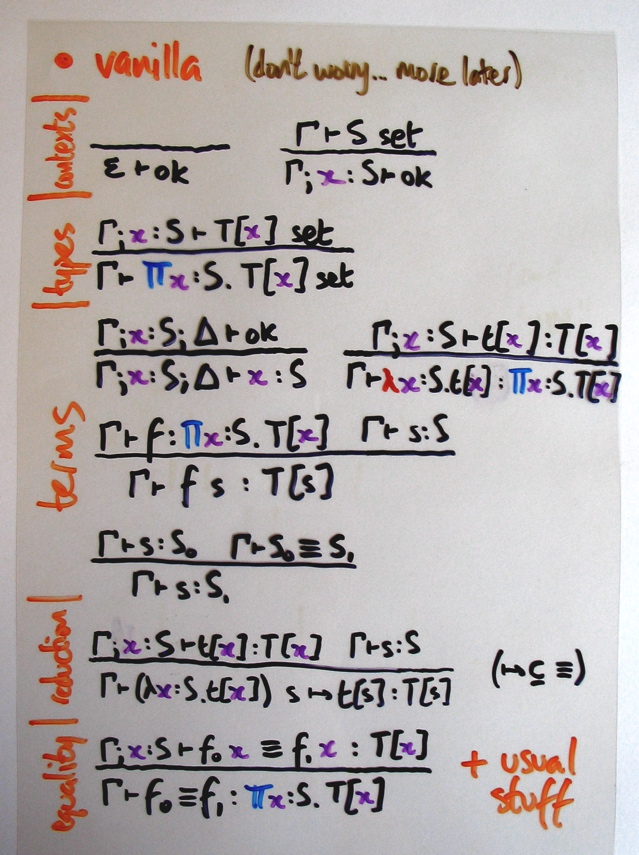 • vanilla (don't worry... more later)
contexts
ℰ ⊢ ok
Γ ⊢ S set
Γ; x : S ⊢ ok
types
Γ; x : S ⊢ T[x] set
Γ ⊢ Πx : S. T[x] set
terms
Γ; x : S; Δ ⊢ ok
Γ; x : S; Δ ⊢ x : S
Γ; x : S ⊢ t[x] : T[x]
Γ ⊢ λx : S. t[x] : Πx : S. T[x]
Γ ⊢ f : Πx : S. T[x] Γ ⊢ s : S
Γ ⊢ f s : T[s]
Γ ⊢ s : S₀ Γ ⊢ S₀ ≡ S₁
Γ ⊢ s : S₁
equality | reduction
Γ; x : S ⊢ t[x] : T[x] Γ ⊢ s : S
Γ ⊢ (λx : S. t[x]) s ↦ t[s] : T[s]
(↦ ⊆ ≡)
Γ; x : S ⊢ f₀ x ≡ f₁ x : T[x]
Γ ⊢ f₀ ≡ f₁ : Πx : S. T[x]
+ usual
stuff